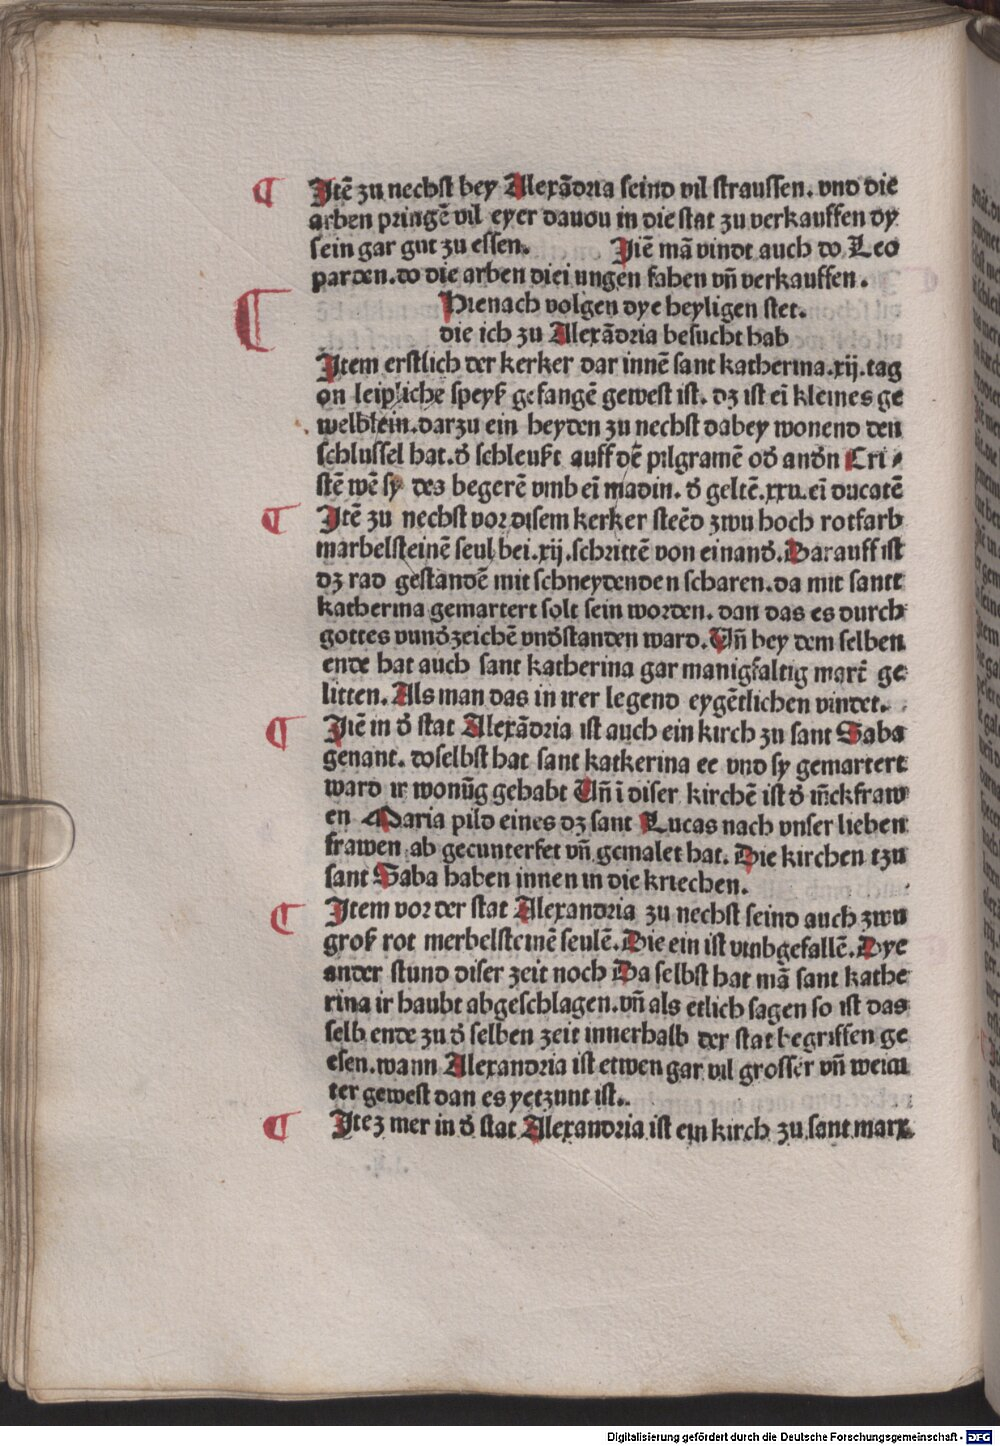 ¶ Jtē zu nechst bey Alexādria seind vil straussen. vnd die
arben pringē vil eyer dauou in die stat zu verkauffen dy
sein gar gut zu essen. Jtē mā vindt auch do Leo
parden. do die arben die iungen fahen vn̄ verkauffen.
¶ Hienach volgen dye heyligen stet.
die ich zu Alexādria besucht hab
Jtem erstlich der kerker dar innē sant katherina .xij. tag
on leipliche speyß gefangē gewest ist. dz ist eī kleines ge
welblein. darzu ein heyden zu nechst dabey wonend den
schlussel hat. d̄ schleußt auff dē pilgramē od̄ andn̄ Cri⸗
stē wē sy des begerē vmb eī madin. d̄ geltē .xxv. eī ducatē
¶ Jtē zu nechst vor disem kerker steēd zwu hoch rotfarb
marbelsteinē seul bei .xij. schrittē von einand̄. Darauff ist
dz rad gestandē mit schneydenden scharen. da mit santt
katherina gemartert solt sein worden. dan das es durch
gottes vund̄zeichē vnd̄standen ward. Vn̄ bey dem selben
ende hat auch sant katherina gar manigfaltig mart̄ ge
litten. Als man das in irer legend eygētlichen vindet.
¶ Jtē in d̄ stat Alexādria ist auch ein kirch zu sant Saba
genant. doselbst hat sant katkerina ee vnd sy gemartert
ward ir wonūg gehabt Vn̄ ī diser kirchē ist d̄ iūckfraw
en Maria pild eines dz sant Lucas nach vnser lieben
frawen ab gecunterfet vn̄ gemalet hat. Die kirchen tzu
sant Saba haben innen in die kriechen.
¶ Jtem vor der stat Alexandria zu nechst seind auch zwu
groß rot merbelsteinē seulē. Die ein ist vmbgefallē. Dye
ander stund diser zeit noch Da selbst hat mā sant kathe
rina ir haubt abgeschlagen. vn̄ als etlich sagen so ist das
selb ende zu d̄ selben zeit innerhalb der stat begriffen ge
esen. wann Alexandria ist etwen gar vil grosser vn̄ weiit
ter gewest dan es yetzunt ist.
¶ Jtez mer in d̄ stat Alexandria ist ein kirch zu sant marx
Digitalisierung gefördert durch die Deutsche Forschungsgemeinschaft - DFG